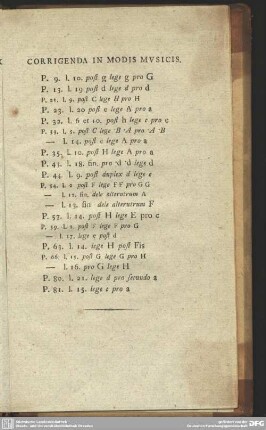 CORRIGENDA IN MODIS MVSICIS.
P. 9. l. 10. post g lege g pro G
P. 13. l. 19 post d lege d pro d
P. 21. l. 9. post C lege H pro H
P. 23. l. 20 post e lege A pro a
P. 32. l. 6 et 10. post h lege c pro c
P. 33. l. 5. post C lege B A pro A B
— l. 14. post c lege A pro a
P. 35. l. 10. post H lege A pro a
P. 43. l. 18. fin. pro d d lege d
P. 44. l. 9. post duplex d lege e
P. 54. l. 2 post F lege FF pro GG
— l. 12. fin. dele alterutrum A
— l. 13. fin dele alterutrum F
P. 57. l. 14. post H lege E pro c
P. 59. l. 2. post lege pro G
— l. 17. lege e post d
P. 63. l. 14. lege H post Fis
P. 66. l. 15. post G lege G pro H
— l. 16. pro G lege H
P. 80. l. 21. lege d pro secundo a
P. 81. l. 15. lege c pro a